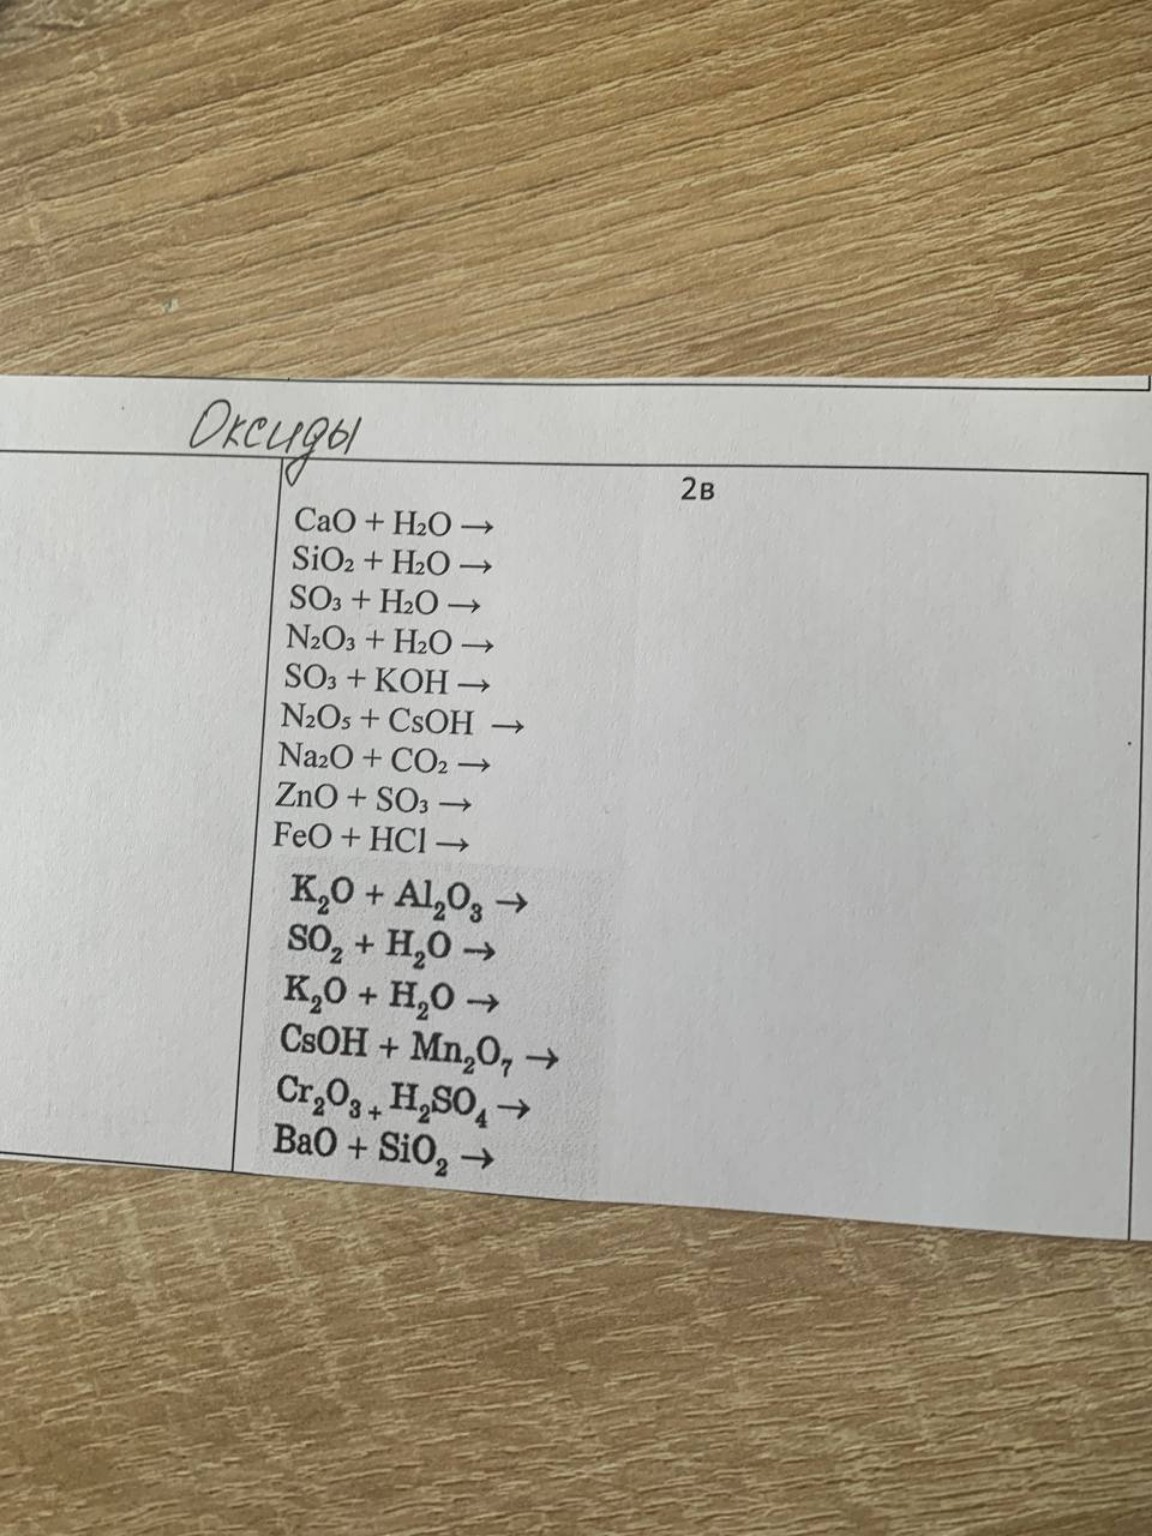 Оксиды
2в
CaO + H₂O →
SiO₂ + H₂O →
SO₃ + H₂O →
N₂O₃ + H₂O →
SO₃ + KOH →
N₂O₅ + CsOH →
Na₂O + CO₂ →
ZnO + SO₃ →
FeO + HCl →
K₂O + Al₂O₃ →
SO₂ + H₂O →
K₂O + H₂O →
CsOH + Mn₂O₇ →
Cr₂O₃ + H₂SO₄ →
BaO + SiO₂ →